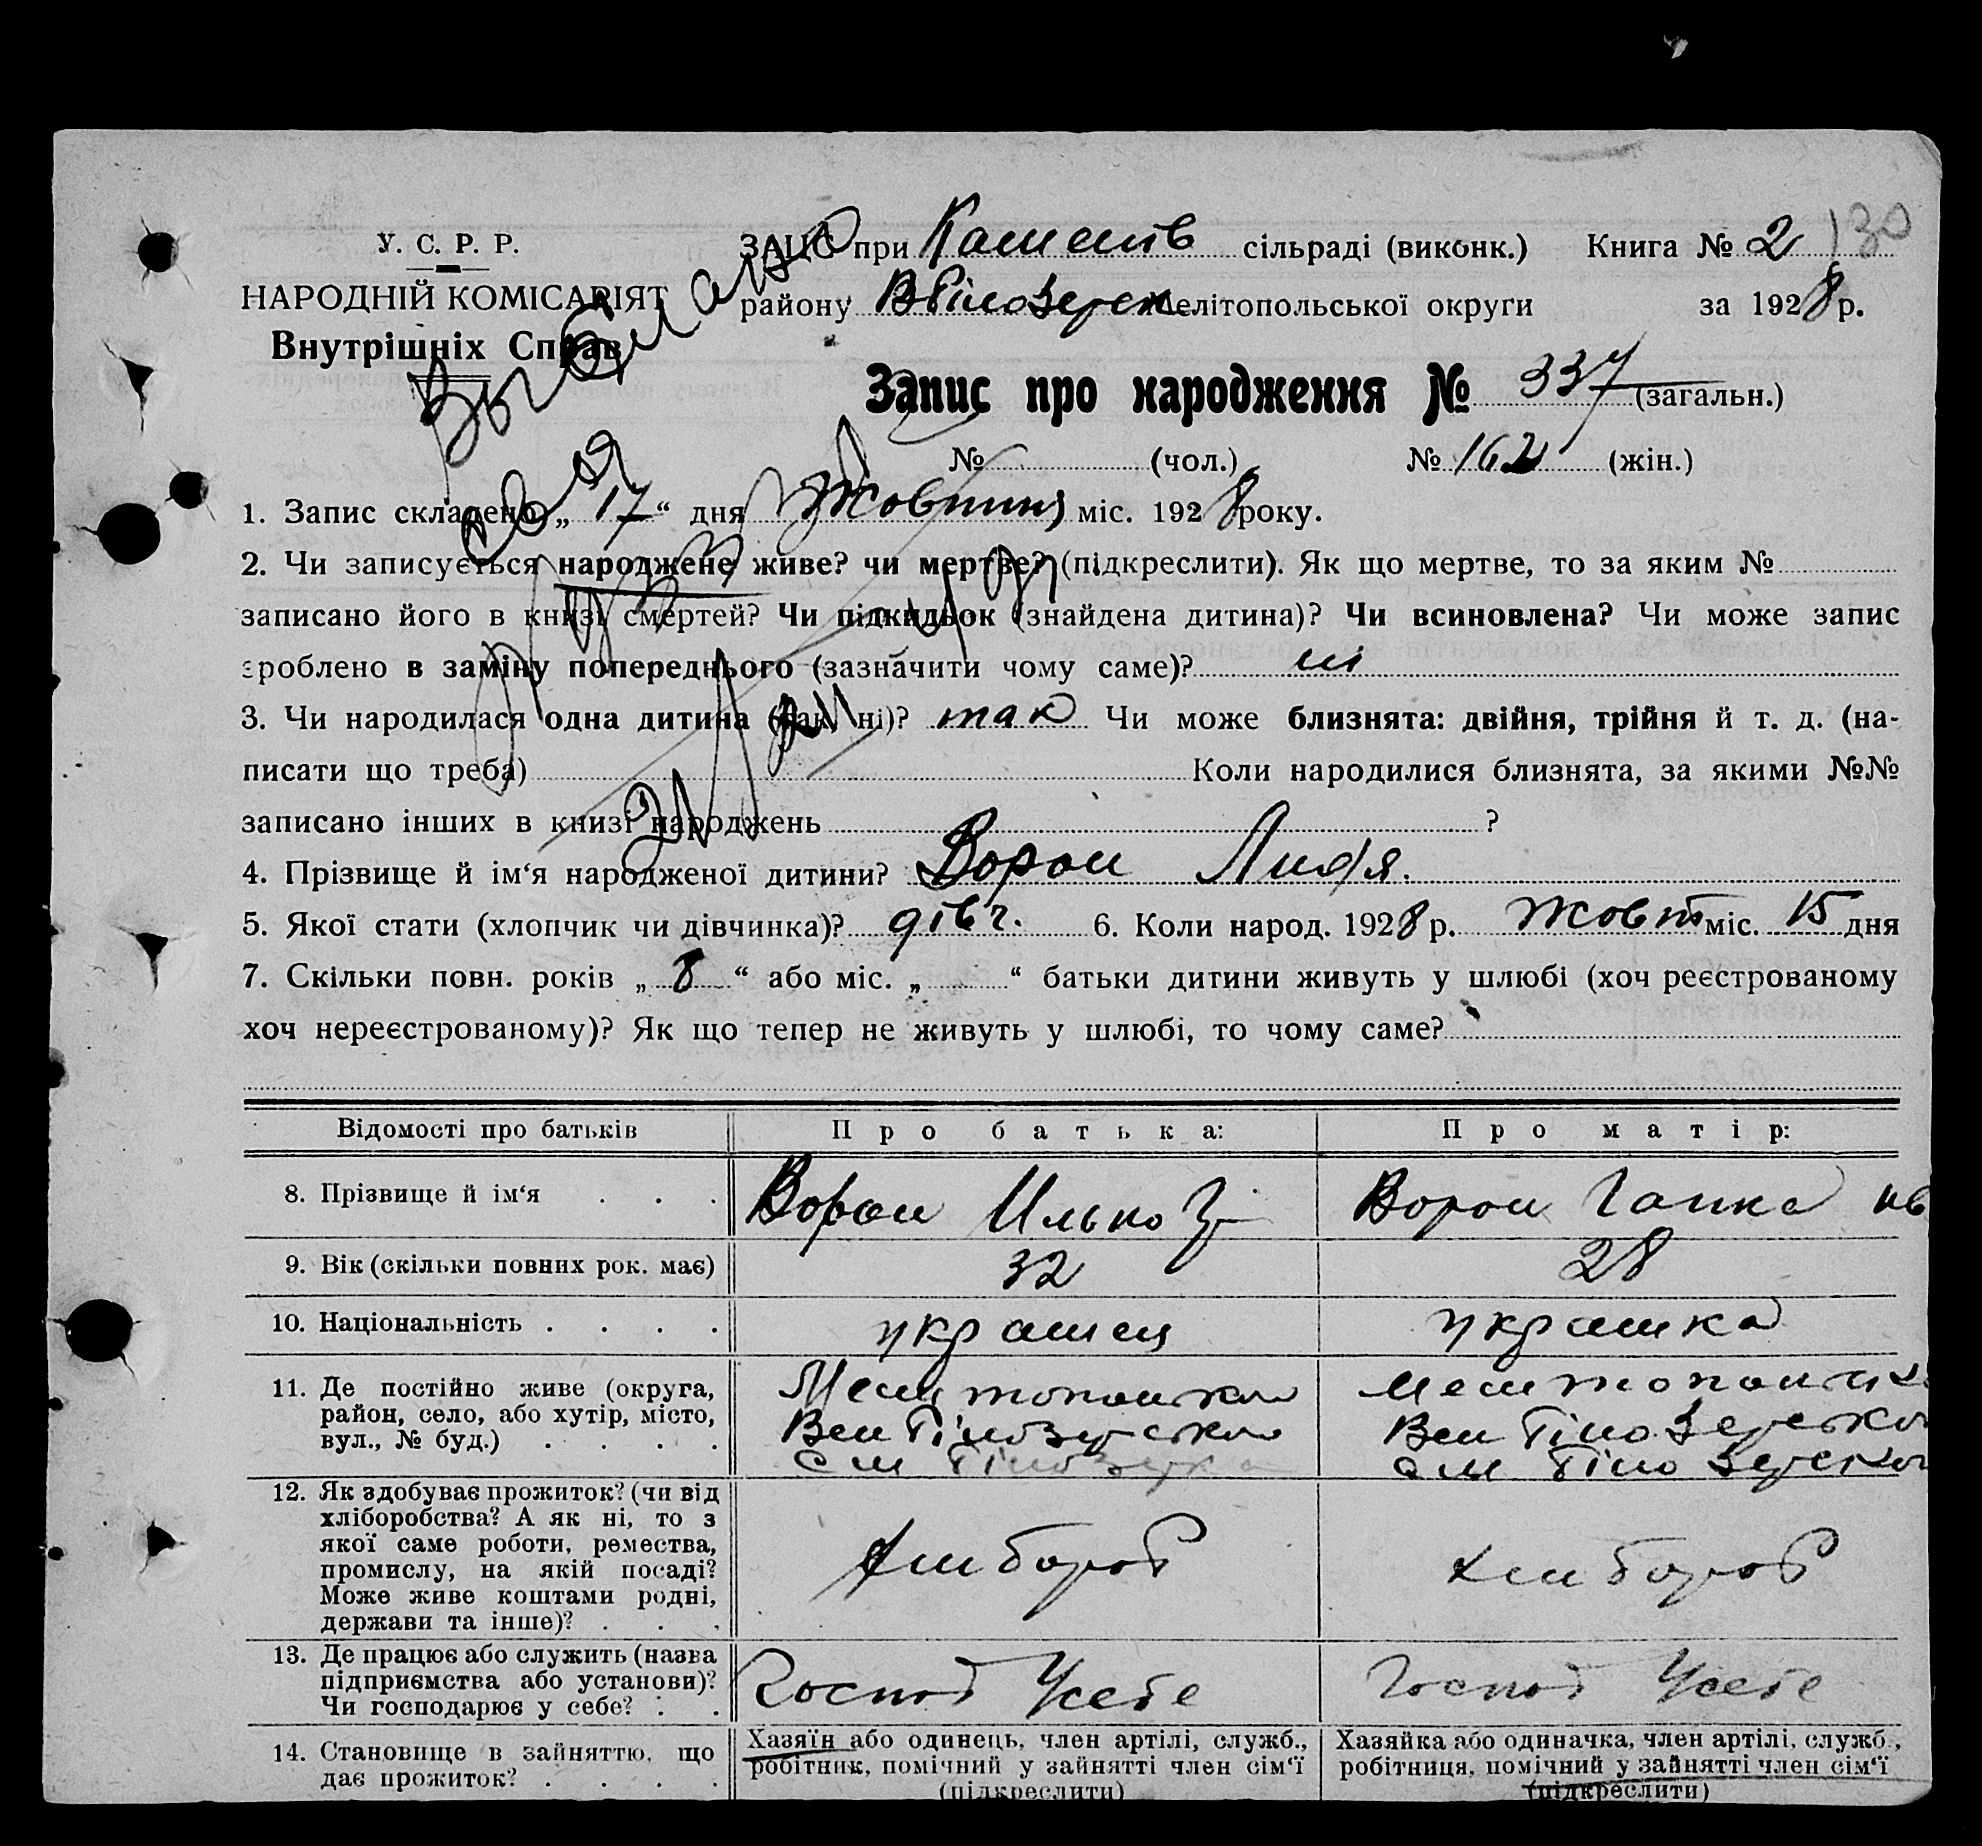 У. С. Р. Р.
НАРОДНІЙ КОМІСАРІЯТ
Внутрішніх Справ
ЗАЦС при сільраді (виконк.) Книга № 2 130
району Мелітопольської округи за 1928 р.
Запис про народження № 337 (загальн.)
№ (чол.) № 162 (жін.)
1. Запис складено „ 17 “ дня Жовтня міс. 1928 року.
2. Чи записується народжене живе? чи мертве? (підкреслити). Як що мертве, то за яким №
записано його в книзі смертей? Чи підкидьок (знайдена дитина)? Чи всиновлена? Чи може запис
зроблено в заміну попереднього (зазначити чому саме)? ні
3. Чи народилася одна дитина (так, ні)? так Чи може близнята: двійня, трійня й т. д. (на-
писати що треба) Коли народилися близнята, за якими №№
записано інших в книзі народжень ?
4. Прізвище й ім‘я народженої дитини? Ворон Лидя.
5. Якої стати (хлопчик чи дівчинка)? дівч. 6. Коли народ. 1928 р. Жовт міс. 15 дня
7. Скільки повн. років „ 8 “ або міс. „ “ батьки дитини живуть у шлюбі (хоч реєстрованому
хоч нереєстрованому)? Як що тепер не живуть у шлюбі, то чому саме?
Відомості про батьків Про батька: Про матір:
8. Прізвище й ім‘я . . . Ворон Илько Ворон Гапка
9. Вік (скільки повних рок. має) 32 28
10. Національність . . . . украінец украінка
11. Де постійно живе (округа,
район, село, або хутір, місто,
вул., № буд.) . . . .
12. Як здобуває прожиток? (чи від
хліборобства? А як ні, то з
якої саме роботи, ремества,
промислу, на якій посаді?
Може живе коштами родні,
держави та інше)? . . . хлибороб хлибороб
13. Де працює або служить (назва
підприємства або установи)?
Чи господарює у себе? . . Господ Усебе Господ Усебе
14. Становище в зайняттю, що
дає прожиток? . . . .
Хазяїн або одинець, член артілі, служб.,
робітник, помічний у зайнятті член сім‘ї
(підкреслити)
Хазяйка або одиначка, член артілі, служб.,
робітниця, помічний у зайнятті член сім‘ї
(підкреслити)